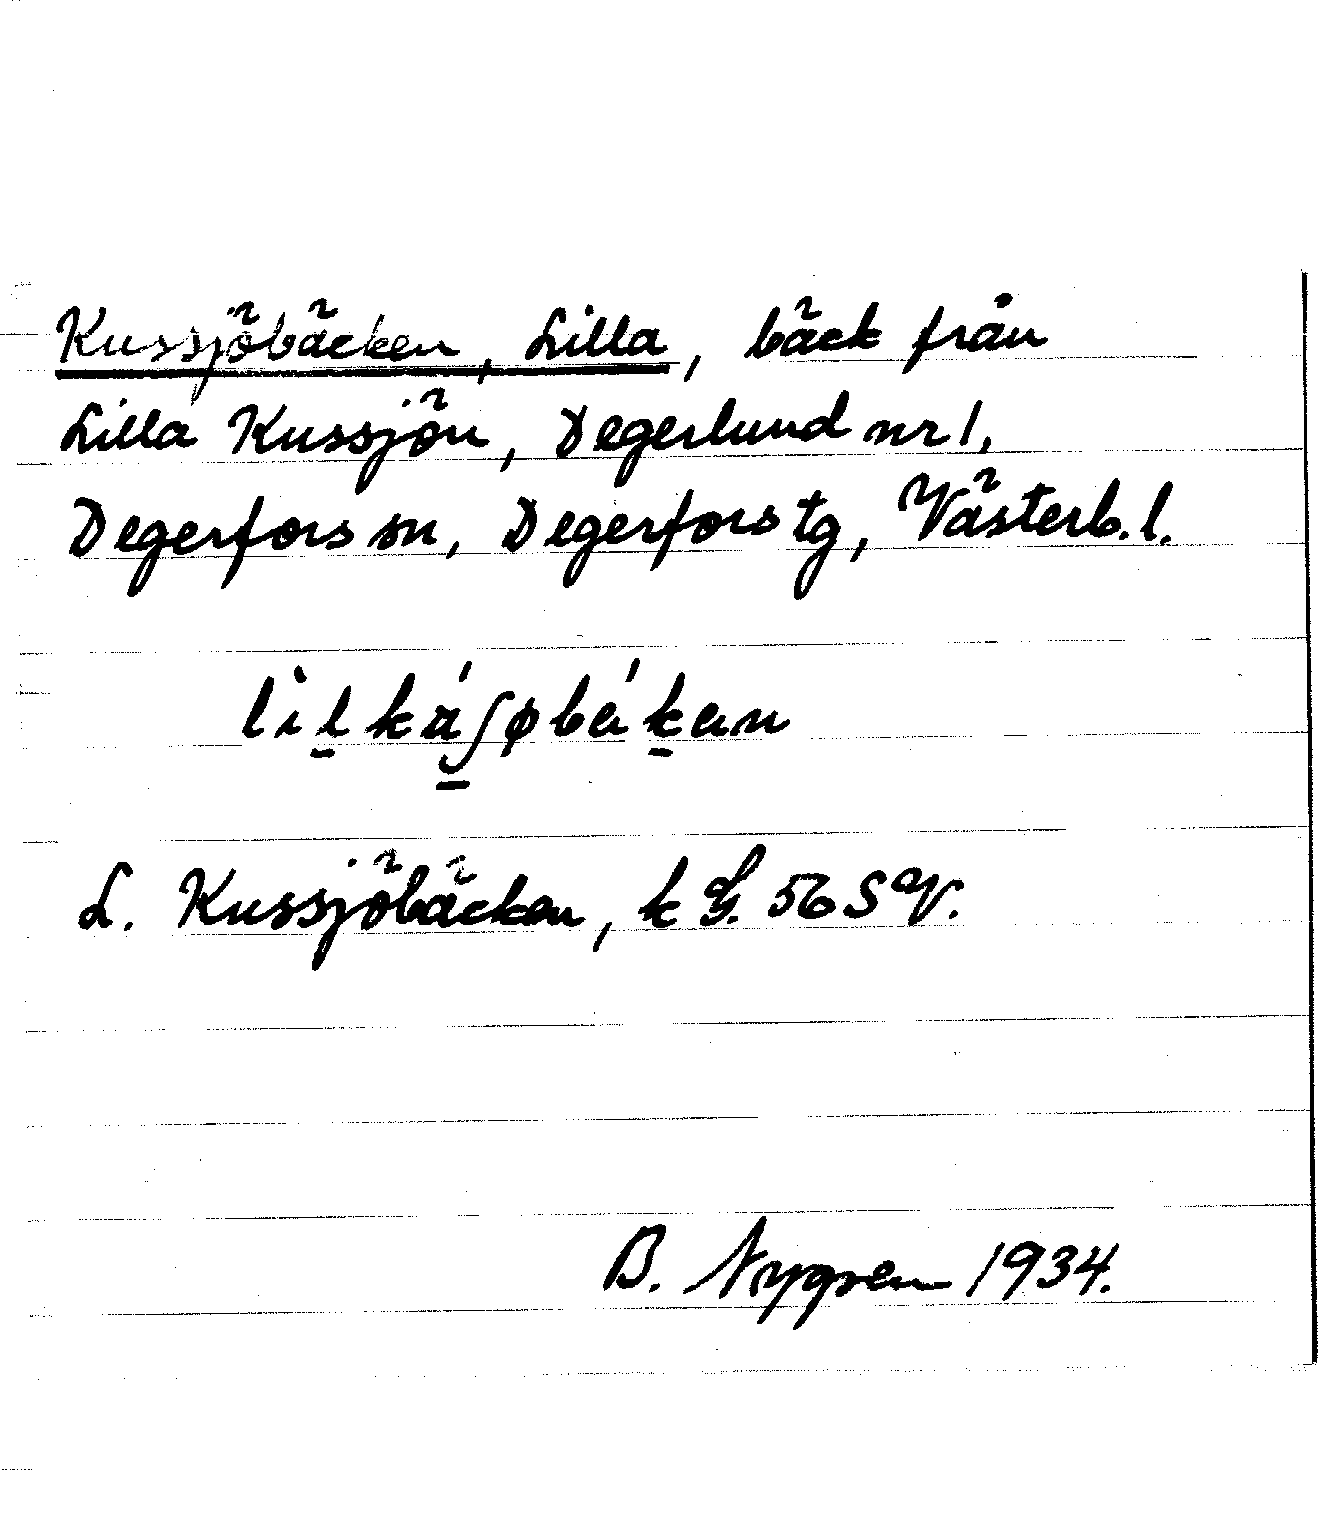 Kussjöbäcken, Lilla, bäck från
Lilla Kussjön, Degerlund nr 1,
Degerfors sn, Degerfors tg, Västerb. l.
L. Kussjöbäcken, k G. 56 SV.
B. Nygren 1934.